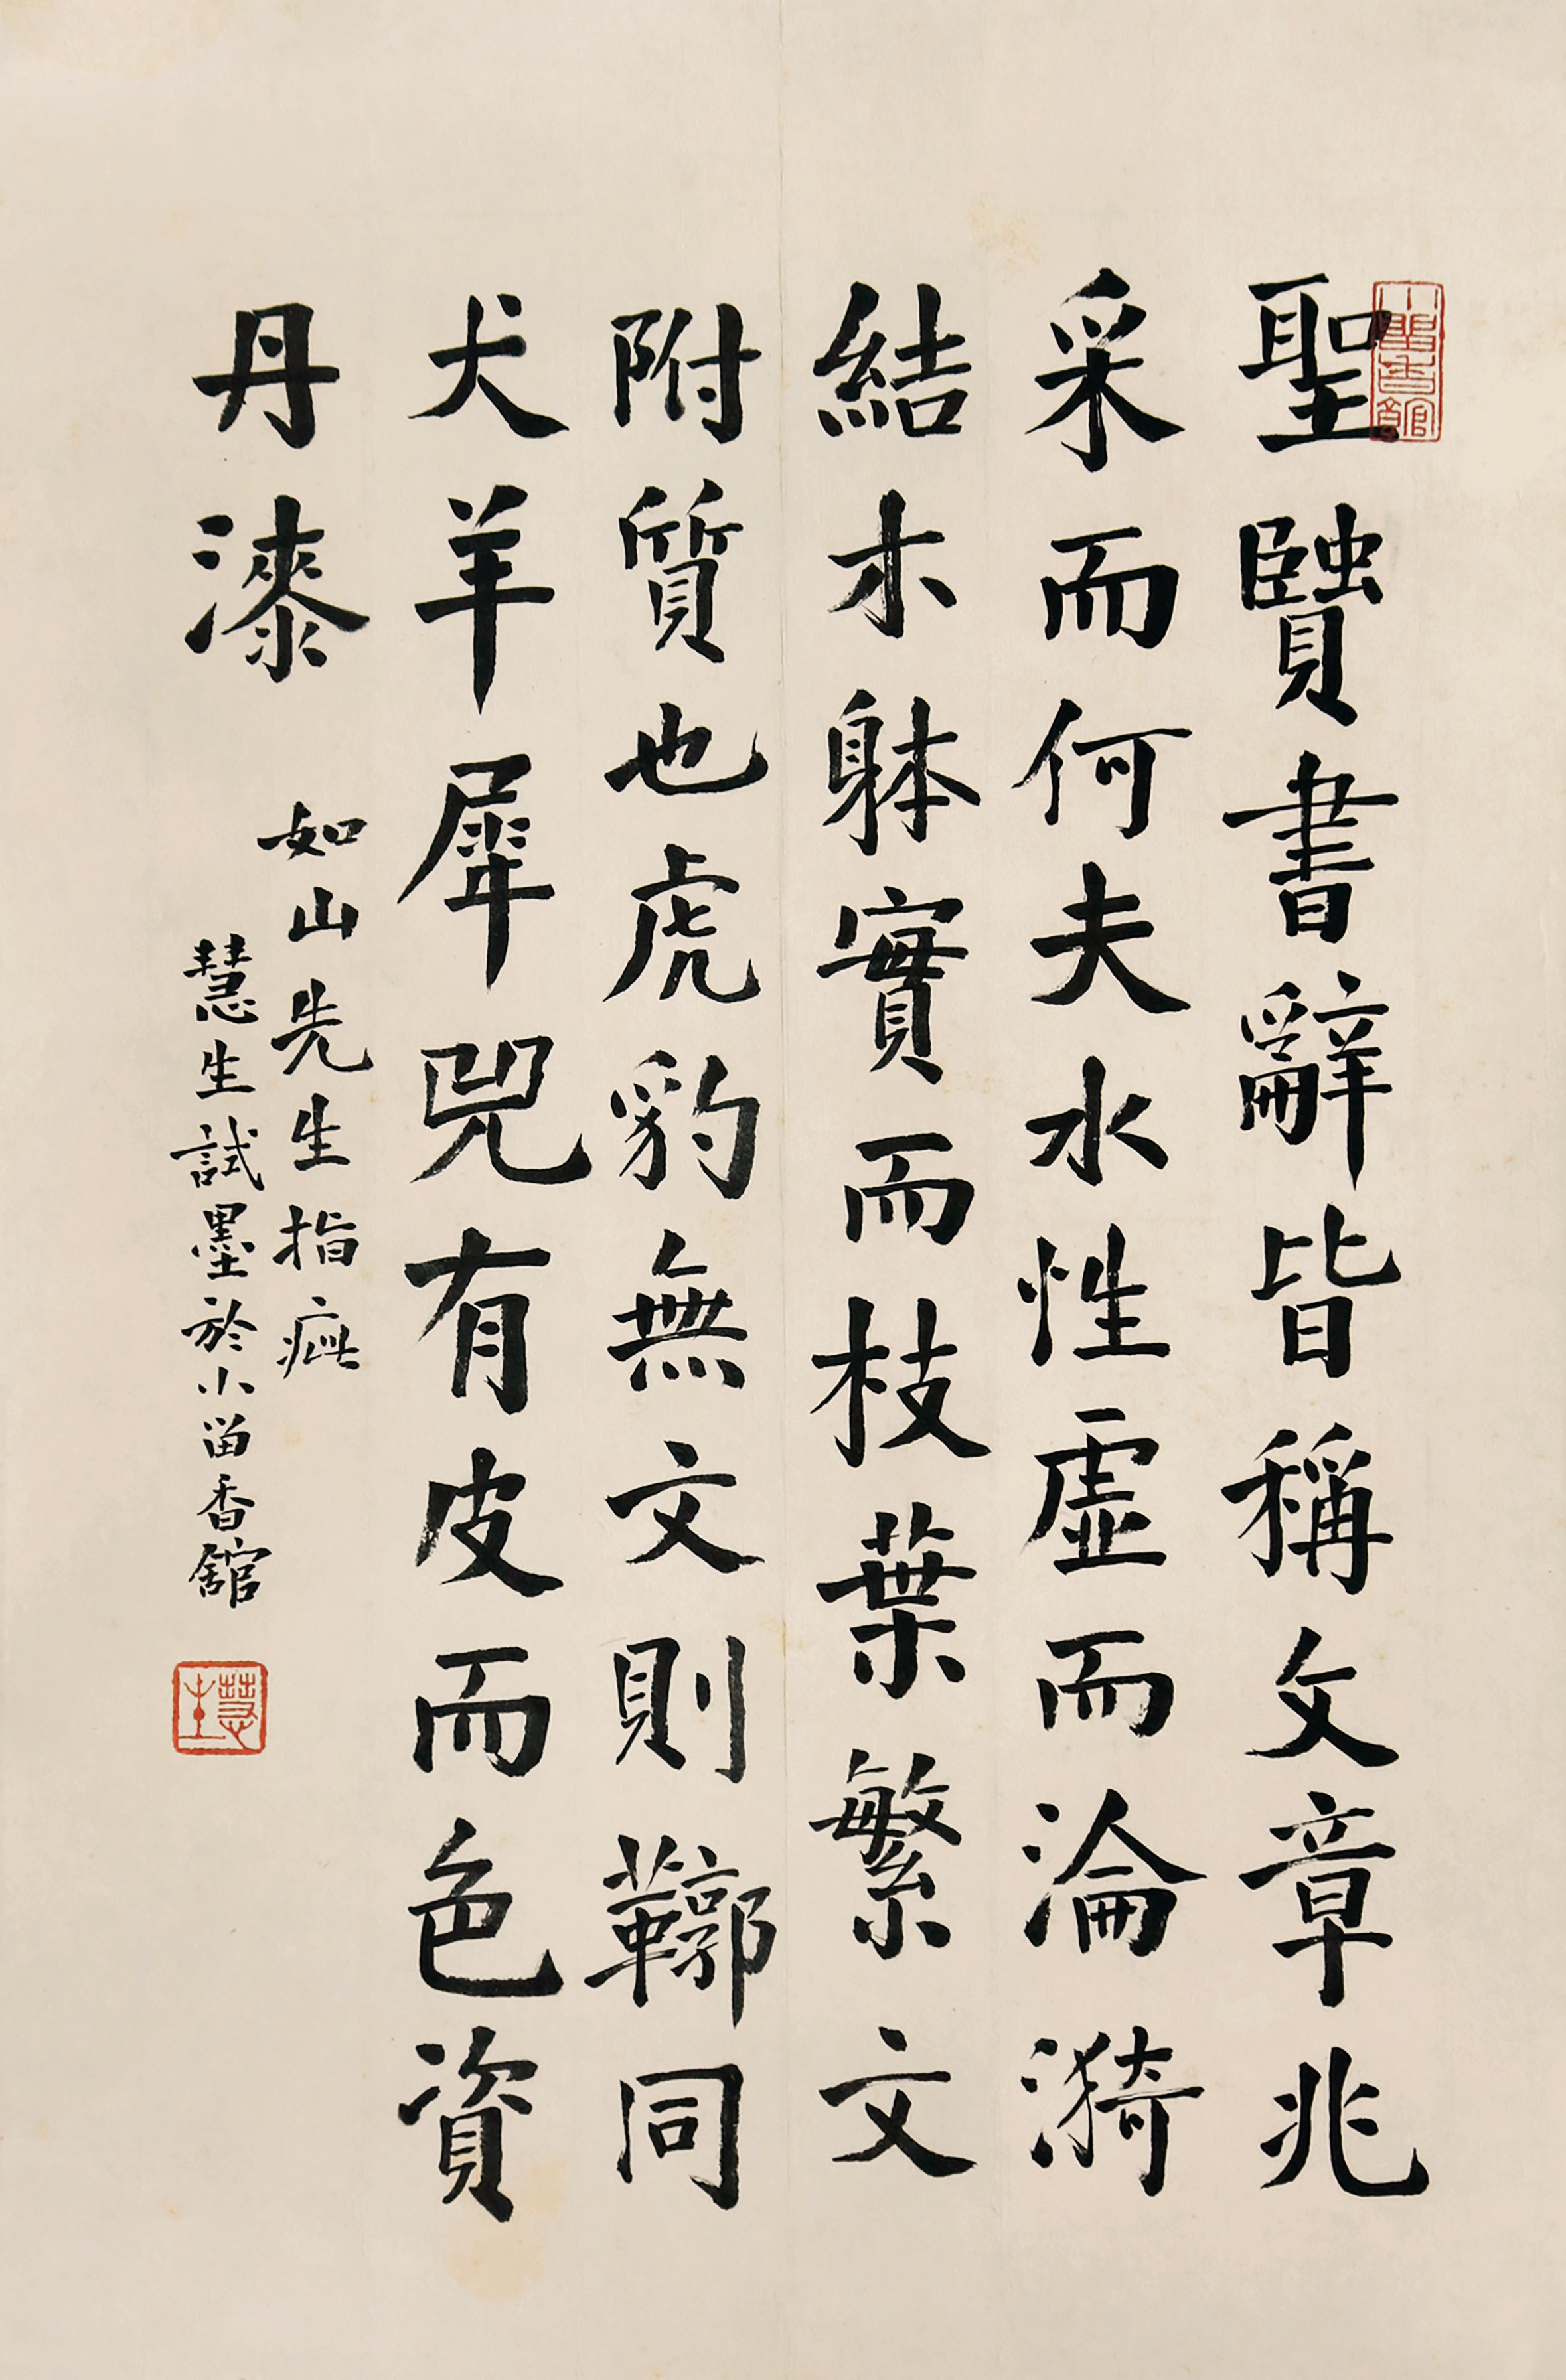 聖賢書辭皆稱文章兆
采而何夫水性虛而淪漪
結木躰實而枝葉繁文
附質也虎豹無文則鞹同
犬羊犀兕有皮而色資
丹漆
如山先生指疵
慧生試墨於小留香館
小留香館
慧生